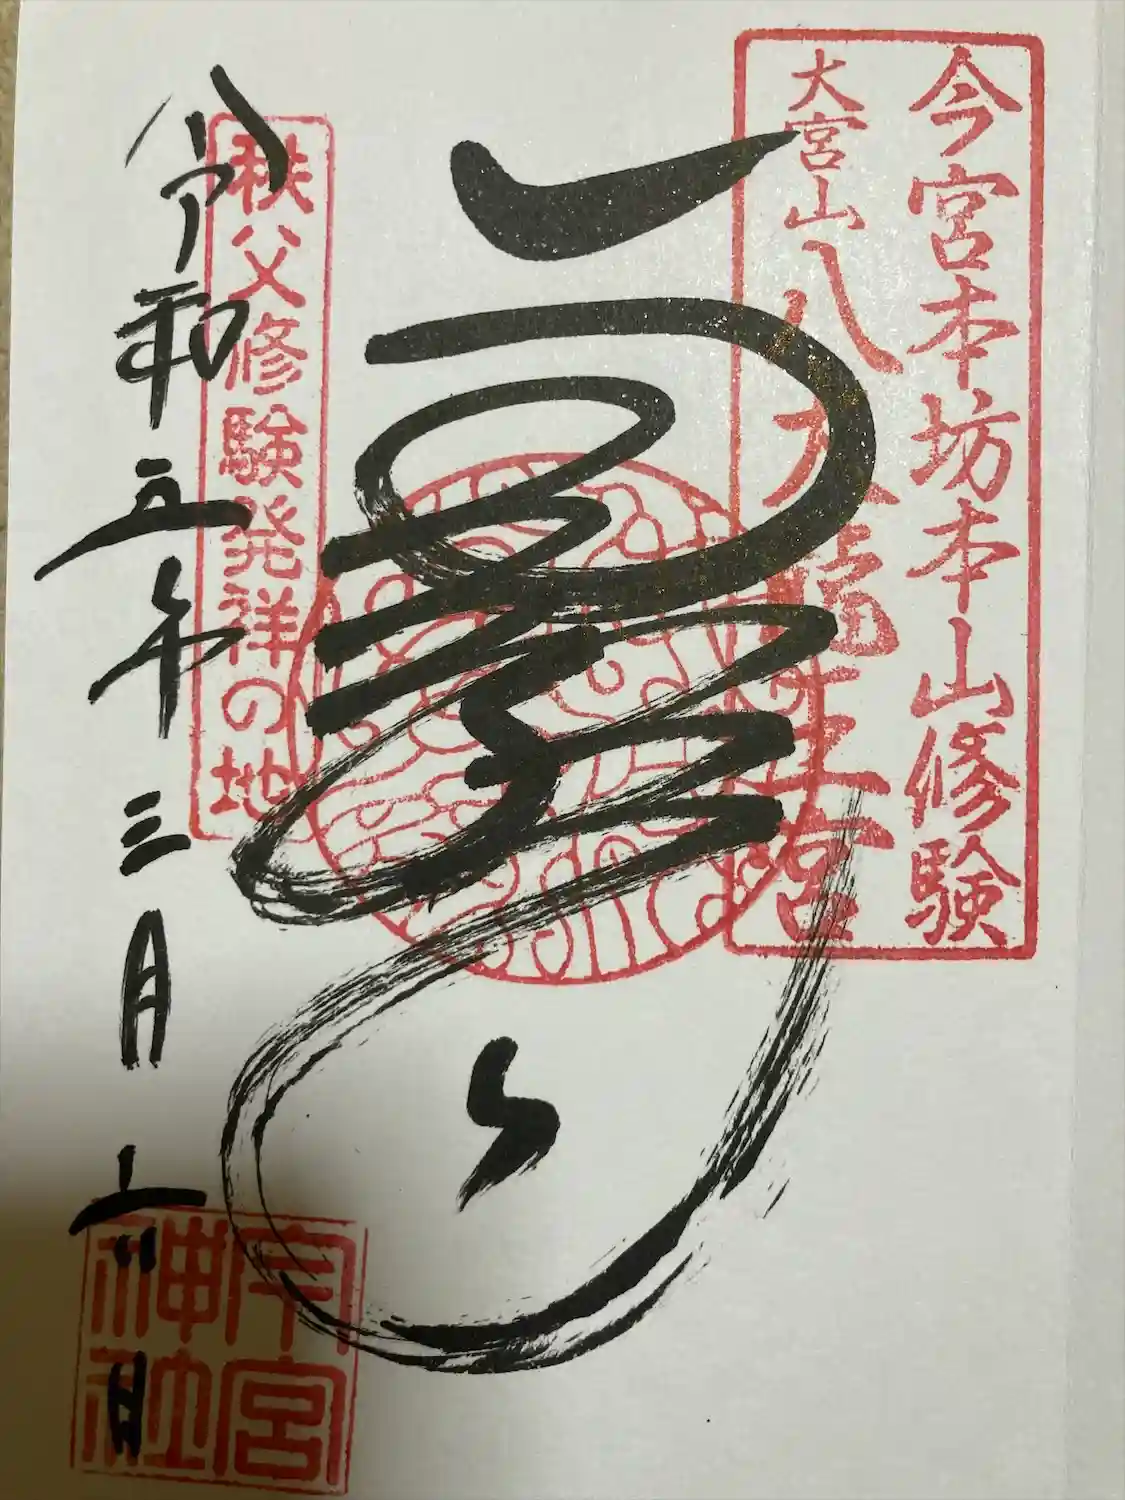 今宮本坊本山修験
大宮山八大龍王宮
秩父修験発祥の地
令和五年三月六日
今宮神社